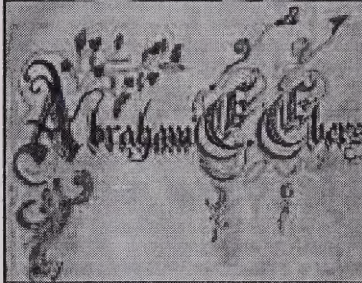 Abraham E. Ebers